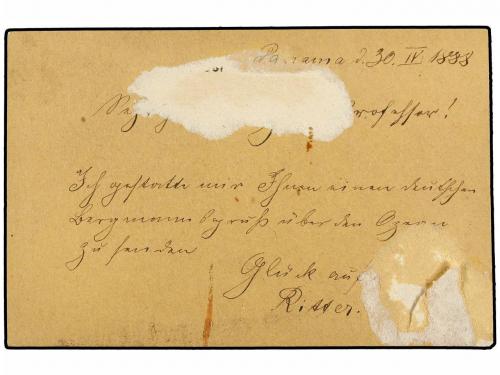 Panama d. 30. IV. 1888
Professor!
Ich gestatte mir Ihnen einen deutschen
Bergmannsspruß über den Ozean
zu senden
Glück auf
Ritter.